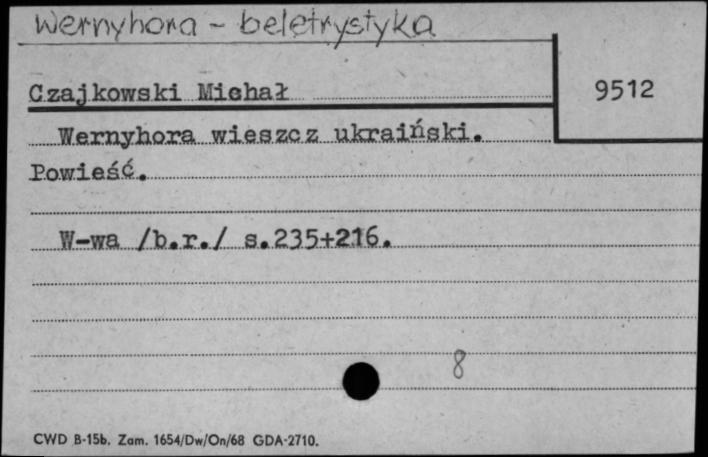 Wernyhora - beletrystyka
Czajkowski Michał
9512
Wernyhora wieszcz ukraiński.
Powieść.
W-wa /b.r./ s.235+216.
8
CWD B-15b. Zam. 1654/Dw/On/68 GDA-2710.